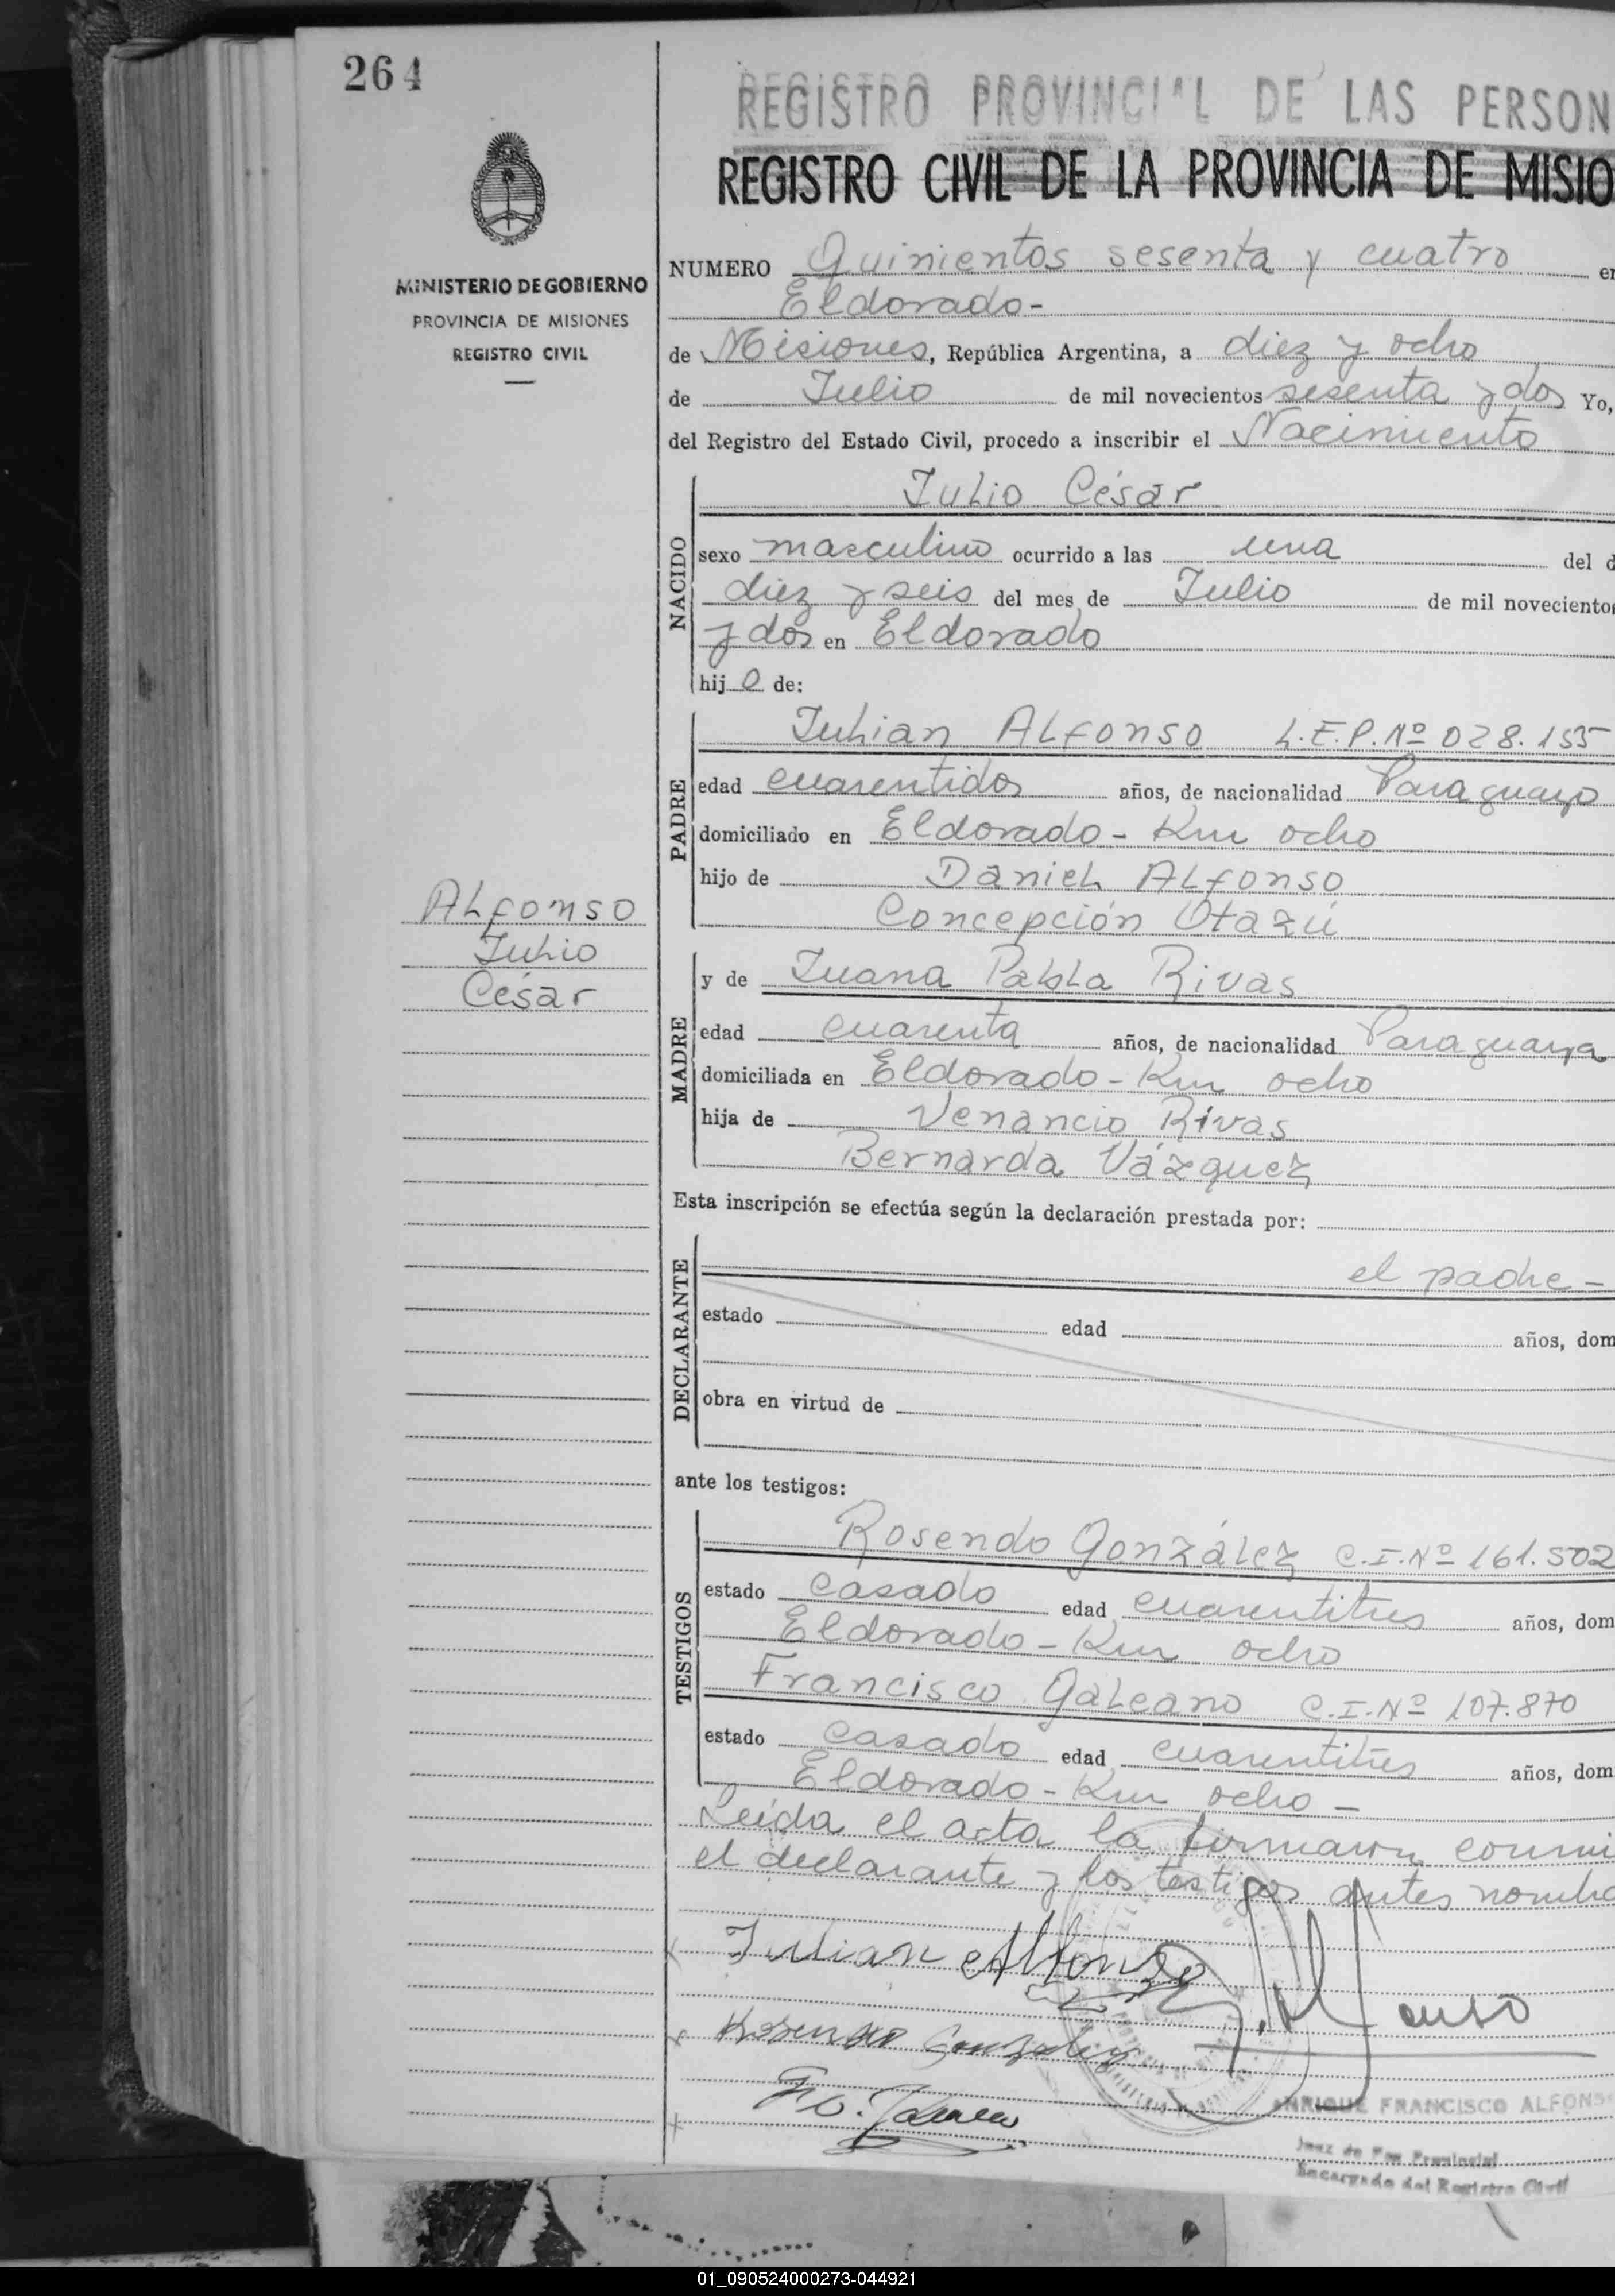 264
REGISTRO PROVINCIAL DE LAS PERSON
REGISTRO CIVIL DE LA PROVINCIA DE MISIO
MINISTERIO DE GOBIERNO
PROVINCIA DE MISIONES
REGISTRO CIVIL
NUMERO Quinientos sesenta y cuatro en
Eldorado-
de Misiones, República Argentina, a diez y ocho
de Julio de mil novecientos sesenta y dos Yo,
del Registro del Estado Civil, procedo a inscribir el Nacimiento
NACIDO
Julio César
sexo masculino ocurrido a las una del d
diez y seis del mes de Julio de mil noveciento
y dos en Eldorado
hijo de:
PADRE
Julian Alfonso L.E.P. Nº 028.155
edad cuarentidos años, de nacionalidad Paraguayo
domiciliado en Eldorado - Km ocho
hijo de Daniel Alfonso
Concepción Otazú
Alfonso
Julio
César
MADRE
y de Juana Pabla Rivas
edad cuarenta años, de nacionalidad Paraguaya
domiciliada en Eldorado - Km ocho
hija de Venancio Rivas
Bernarda Vázquez
Esta inscripción se efectúa según la declaración prestada por:
DECLARANTE
el padre -
estado edad años, dom
obra en virtud de
ante los testigos:
TESTIGOS
Rosendo González C.I. Nº 161.502
estado casado edad cuarentitres años, dom
Eldorado - Km ocho
Francisco Galeano C.I. Nº 107.870
estado casado edad cuarentitres años, dom
Eldorado - Km ocho -
Leída el acta la firmaron conmi
el declarante y los testigos antes nombra
Julian Alfonso
Rosendo Gonzalez
Fco. Galeano
ENRIQUE FRANCISCO ALFONS
Juez de Paz Provincial
Encargado del Registro Civil
01_090524000273-044921